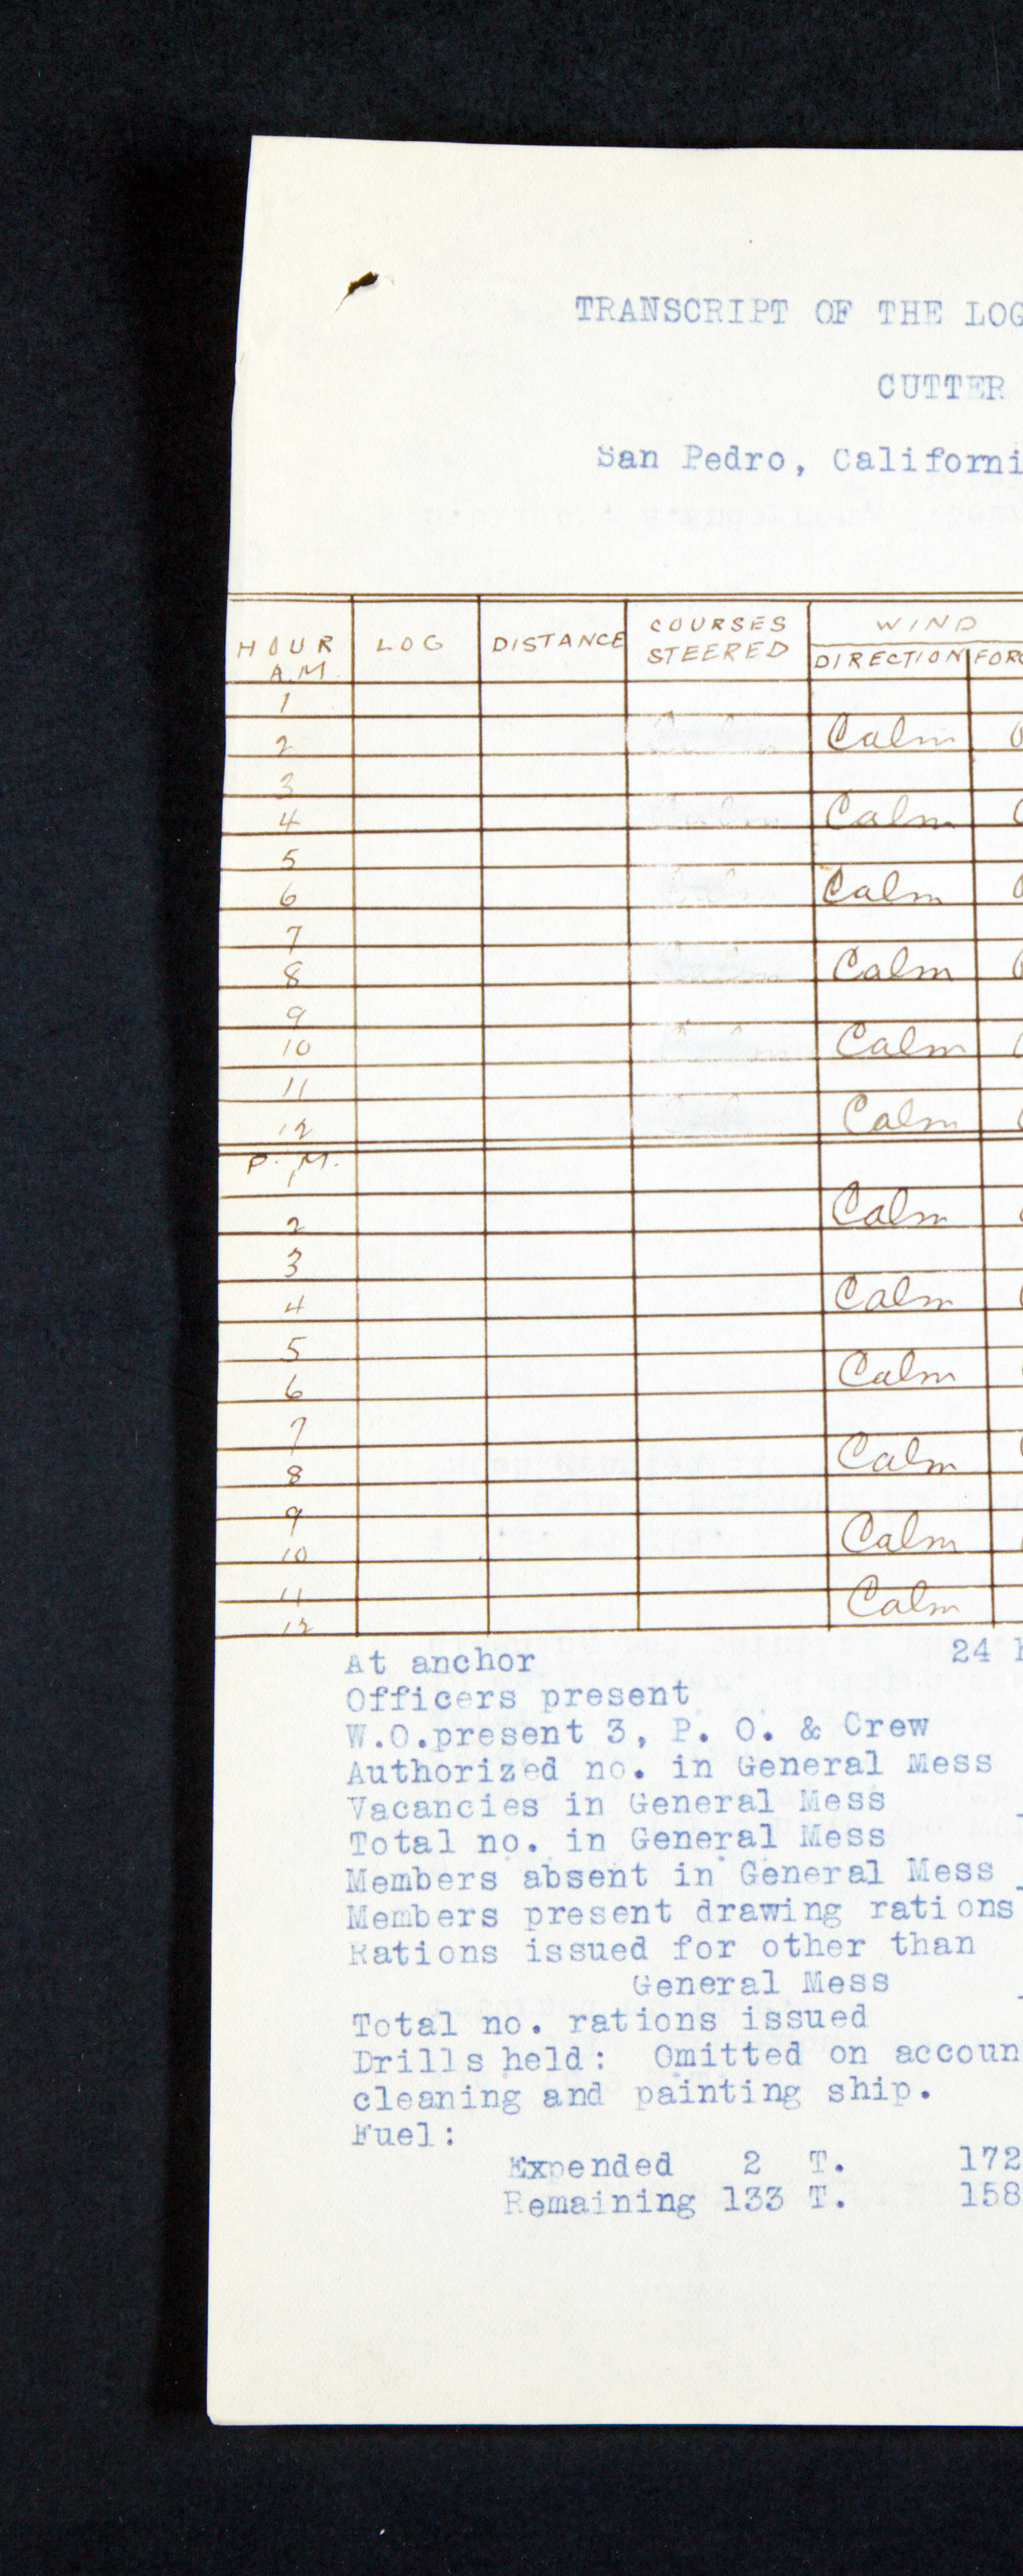 TRANSCRIPT OF THE LOG
CUTTER
San Pedro, Californi
HOUR LOG DISTANCE COURSES STEERED WIND
DIRECTION FORC
A.M.
1
2 Calm 0
3
4 Calm 0
5
6 Calm 0
7
8 Calm 0
9
10 Calm 0
11
12 Calm 0
P.M.
1
2 Calm
3
4 Calm
5
6 Calm
7
8 Calm
9
10 Calm
11
12 Calm
At anchor 24 h
Officers present
W.O.present 3, P. O. & Crew
Authorized no. in General Mess
Vacancies in General Mess
Total no. in General Mess
Members absent in General Mess
Members present drawing rations
Rations issued for other than
General Mess
Total no. rations issued
Drills held: Omitted on accoun
cleaning and painting ship.
Fuel:
Expended 2 T. 172
Remaining 133 T. 158